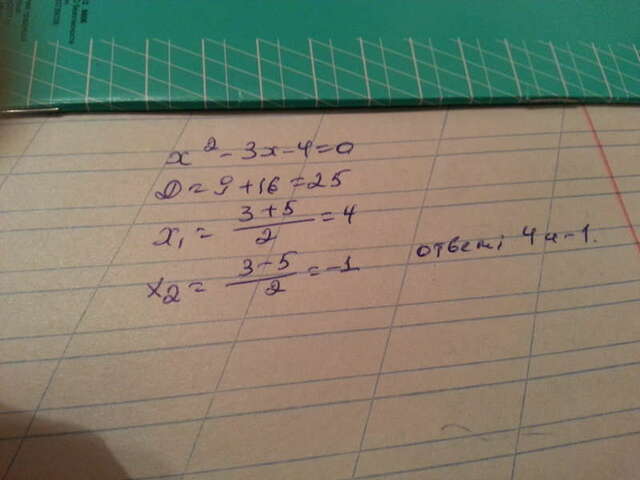 x² - 3x - 4 = 0
D = 9 + 16 = 25
x₁ = (3 + 5)/2 = 4
x₂ = (3 - 5)/2 = -1
ответ: 4 и -1.